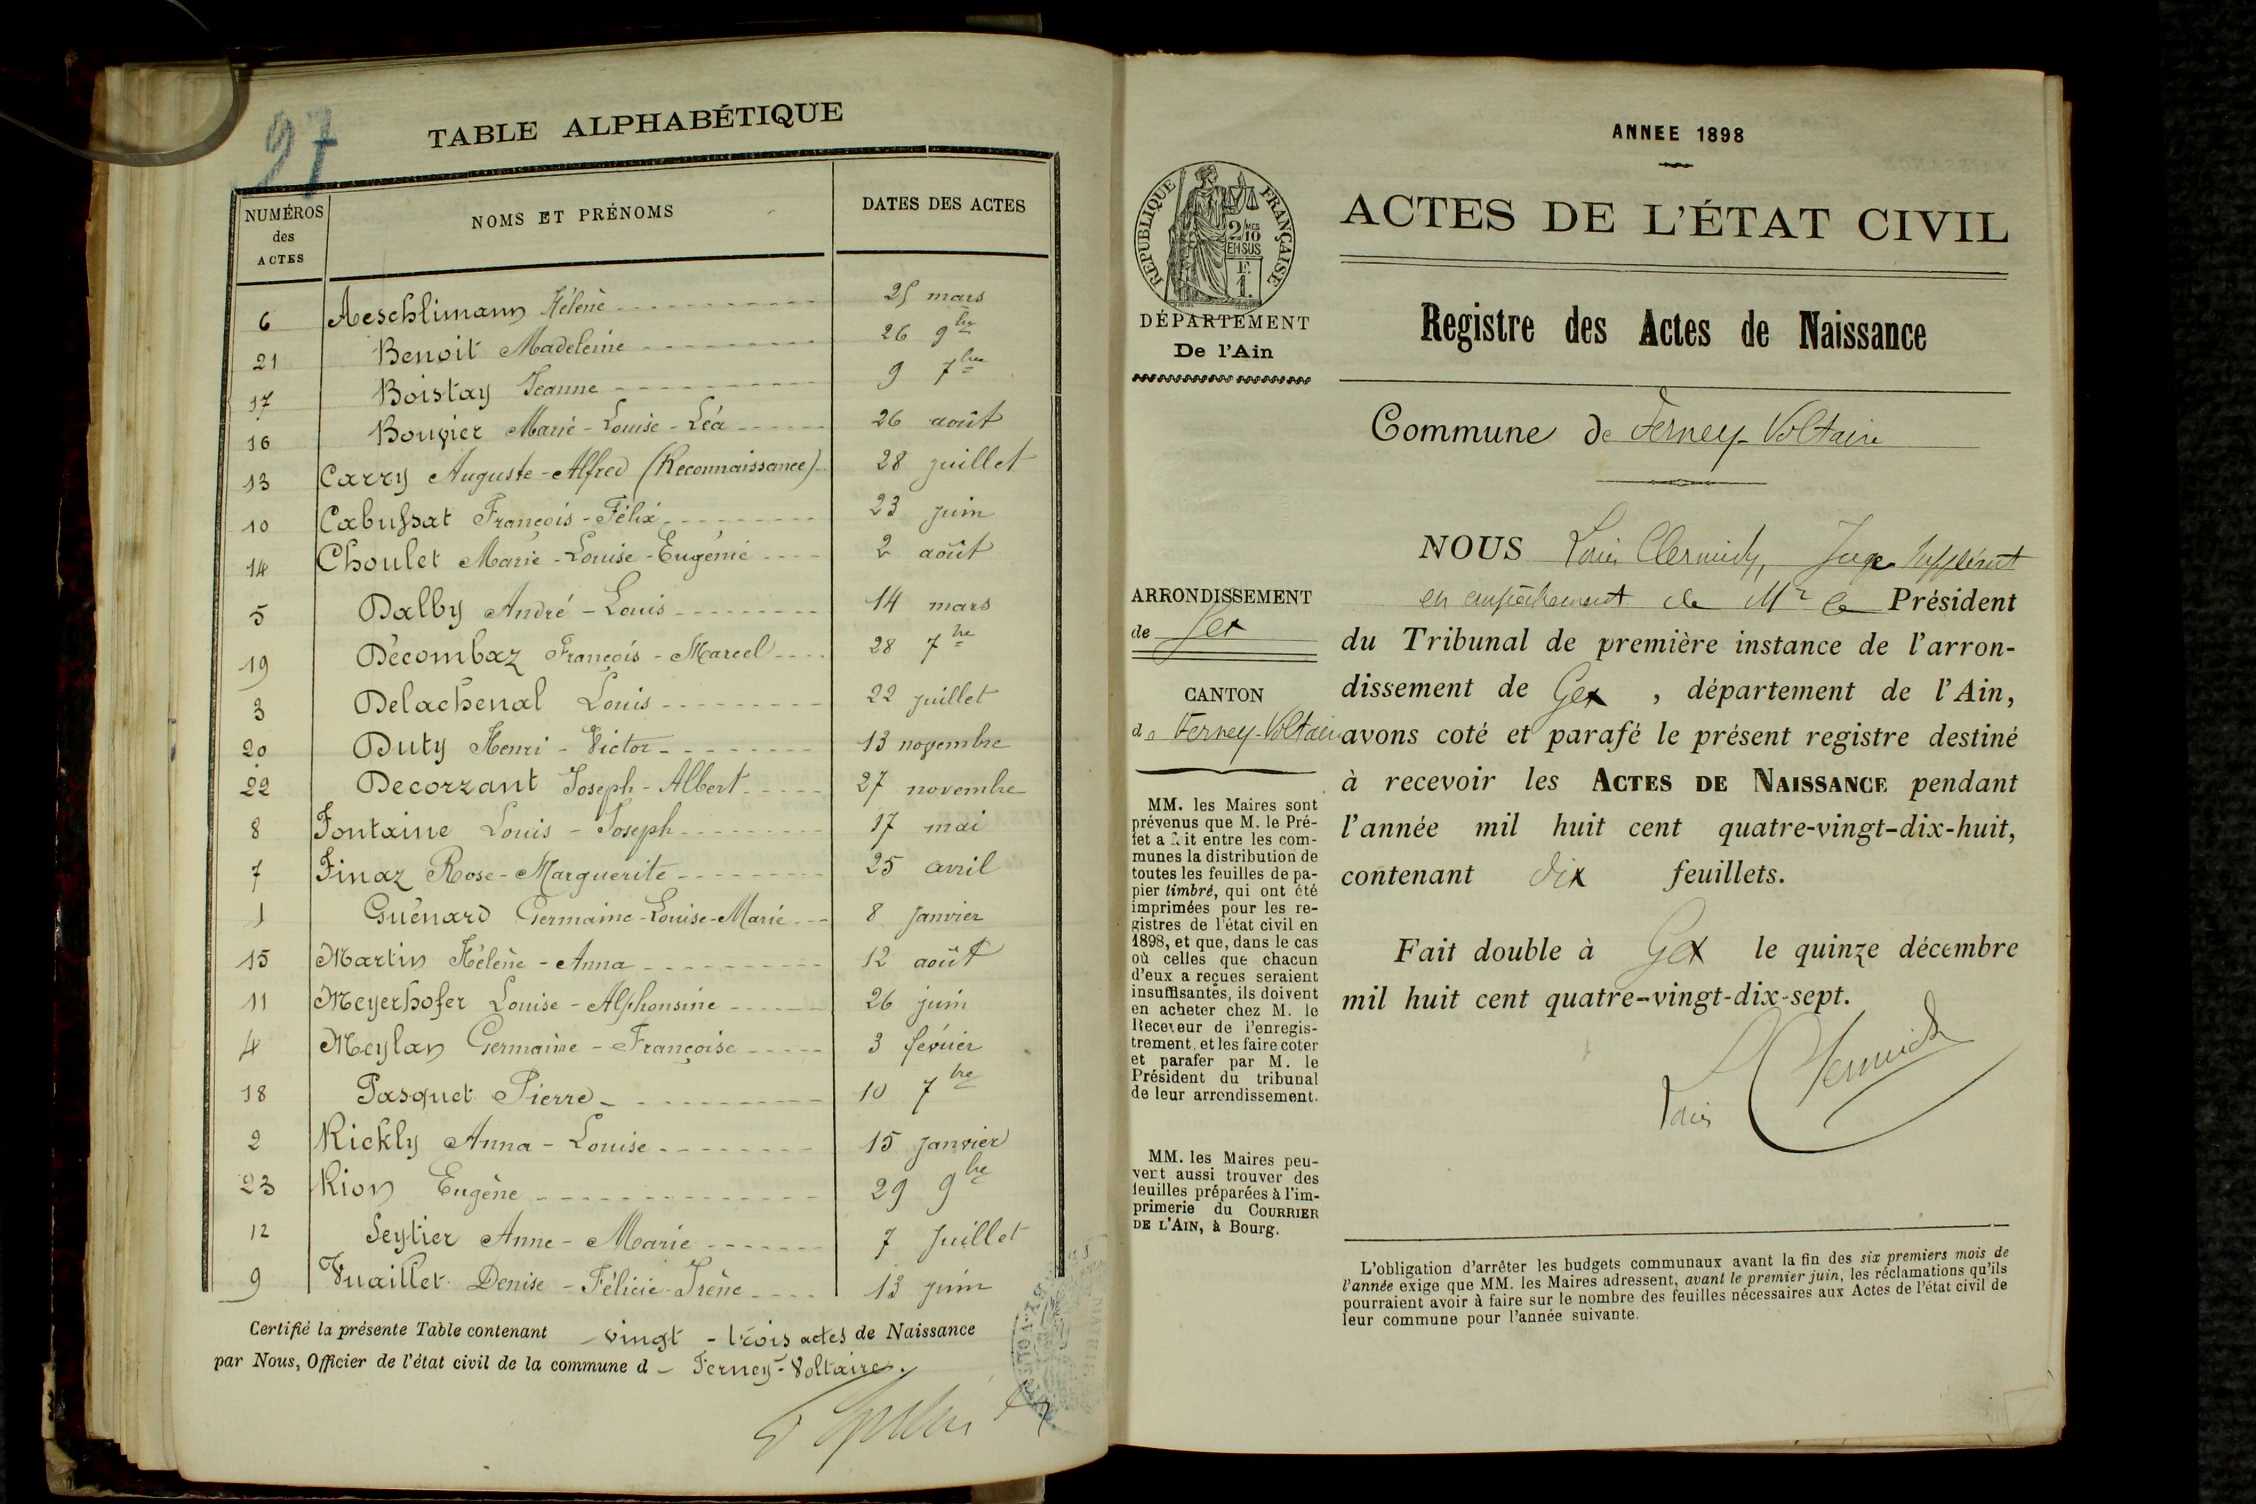 97
TABLE ALPHABÉTIQUE
NUMÉROS des ACTES
NOMS ET PRÉNOMS
DATES DES ACTES
6 Aeschlimann Hélène 25 mars
21 Benoit Madeleine 26 9bre
17 Boistay Jeanne 9 7bre
16 Bouvier Marie-Louise-Léa 26 août
13 Carry Auguste-Alfred (Reconnaissance) 28 juillet
10 Cabussat François-Félix 23 juin
14 Choulet Marie-Louise-Eugénie 2 août
5 Dalby André-Louis 14 mars
19 Décombaz François-Marcel 28 7bre
3 Delachenal Louis 22 juillet
20 Duty Henri-Victor 13 novembre
22 Decorzant Joseph-Albert 27 novembre
8 Fontaine Louis-Joseph 17 mai
7 Finaz Rose-Marguerite 25 avril
1 Guénard Germaine-Louise-Marie 8 Janvier
15 Martin Hélène-Anna 12 août
11 Meyerhofer Louise-Alphonsine 26 juin
4 Meylan Germaine-Françoise 3 février
18 Pasquet Pierre 10 7bre
2 Rickly Anna-Louise 15 janvier
23 Rion Eugène 29 9bre
12 Seytier Anne-Marie 7 Juillet
9 Vuaillet Denise-Félicie-Irène 13 juin
Certifié la présente Table contenant vingt-trois actes de Naissance
par Nous, Officier de l'état civil de la commune d Ferney-Voltaire.
ANNEE 1898
REPUBLIQUE FRANÇAISE
2 MES 10 EN SUS
F. 1.
ACTES DE L'ÉTAT CIVIL
DÉPARTEMENT
De l'Ain
Registre des Actes de Naissance
Commune de Ferney-Voltaire
ARRONDISSEMENT
de Gex
CANTON
de Ferney-Voltaire
MM. les Maires sont
prévenus que M. le Pré-
fet a fait entre les com-
munes la distribution de
toutes les feuilles de pa-
pier timbré, qui ont été
imprimées pour les re-
gistres de l'état civil en
1898, et que, dans le cas
où celles que chacun
d'eux a reçues seraient
insuffisantes, ils doivent
en acheter chez M. le
Receveur de l'enregis-
trement, et les faire coter
et parafer par M. le
Président du tribunal
de leur arrondissement.
MM. les Maires peu-
vent aussi trouver des
feuilles préparées à l'im-
primerie du COURRIER
DE L'AIN, à Bourg.
NOUS Louis Clermidy, Juge suppléant
en empêchement de Mr le Président
du Tribunal de première instance de l'arron-
dissement de Gex, département de l'Ain,
avons coté et parafé le présent registre destiné
à recevoir les ACTES DE NAISSANCE pendant
l'année mil huit cent quatre-vingt-dix-huit,
contenant dix feuillets.
Fait double à Gex le quinze décembre
mil huit cent quatre-vingt-dix-sept.
L'obligation d'arrêter les budgets communaux avant la fin des six premiers mois de
l'année exige que MM. les Maires adressent, avant le premier juin, les réclamations qu'ils
pourraient avoir à faire sur le nombre des feuilles nécessaires aux Actes de l'état civil de
leur commune pour l'année suivante.